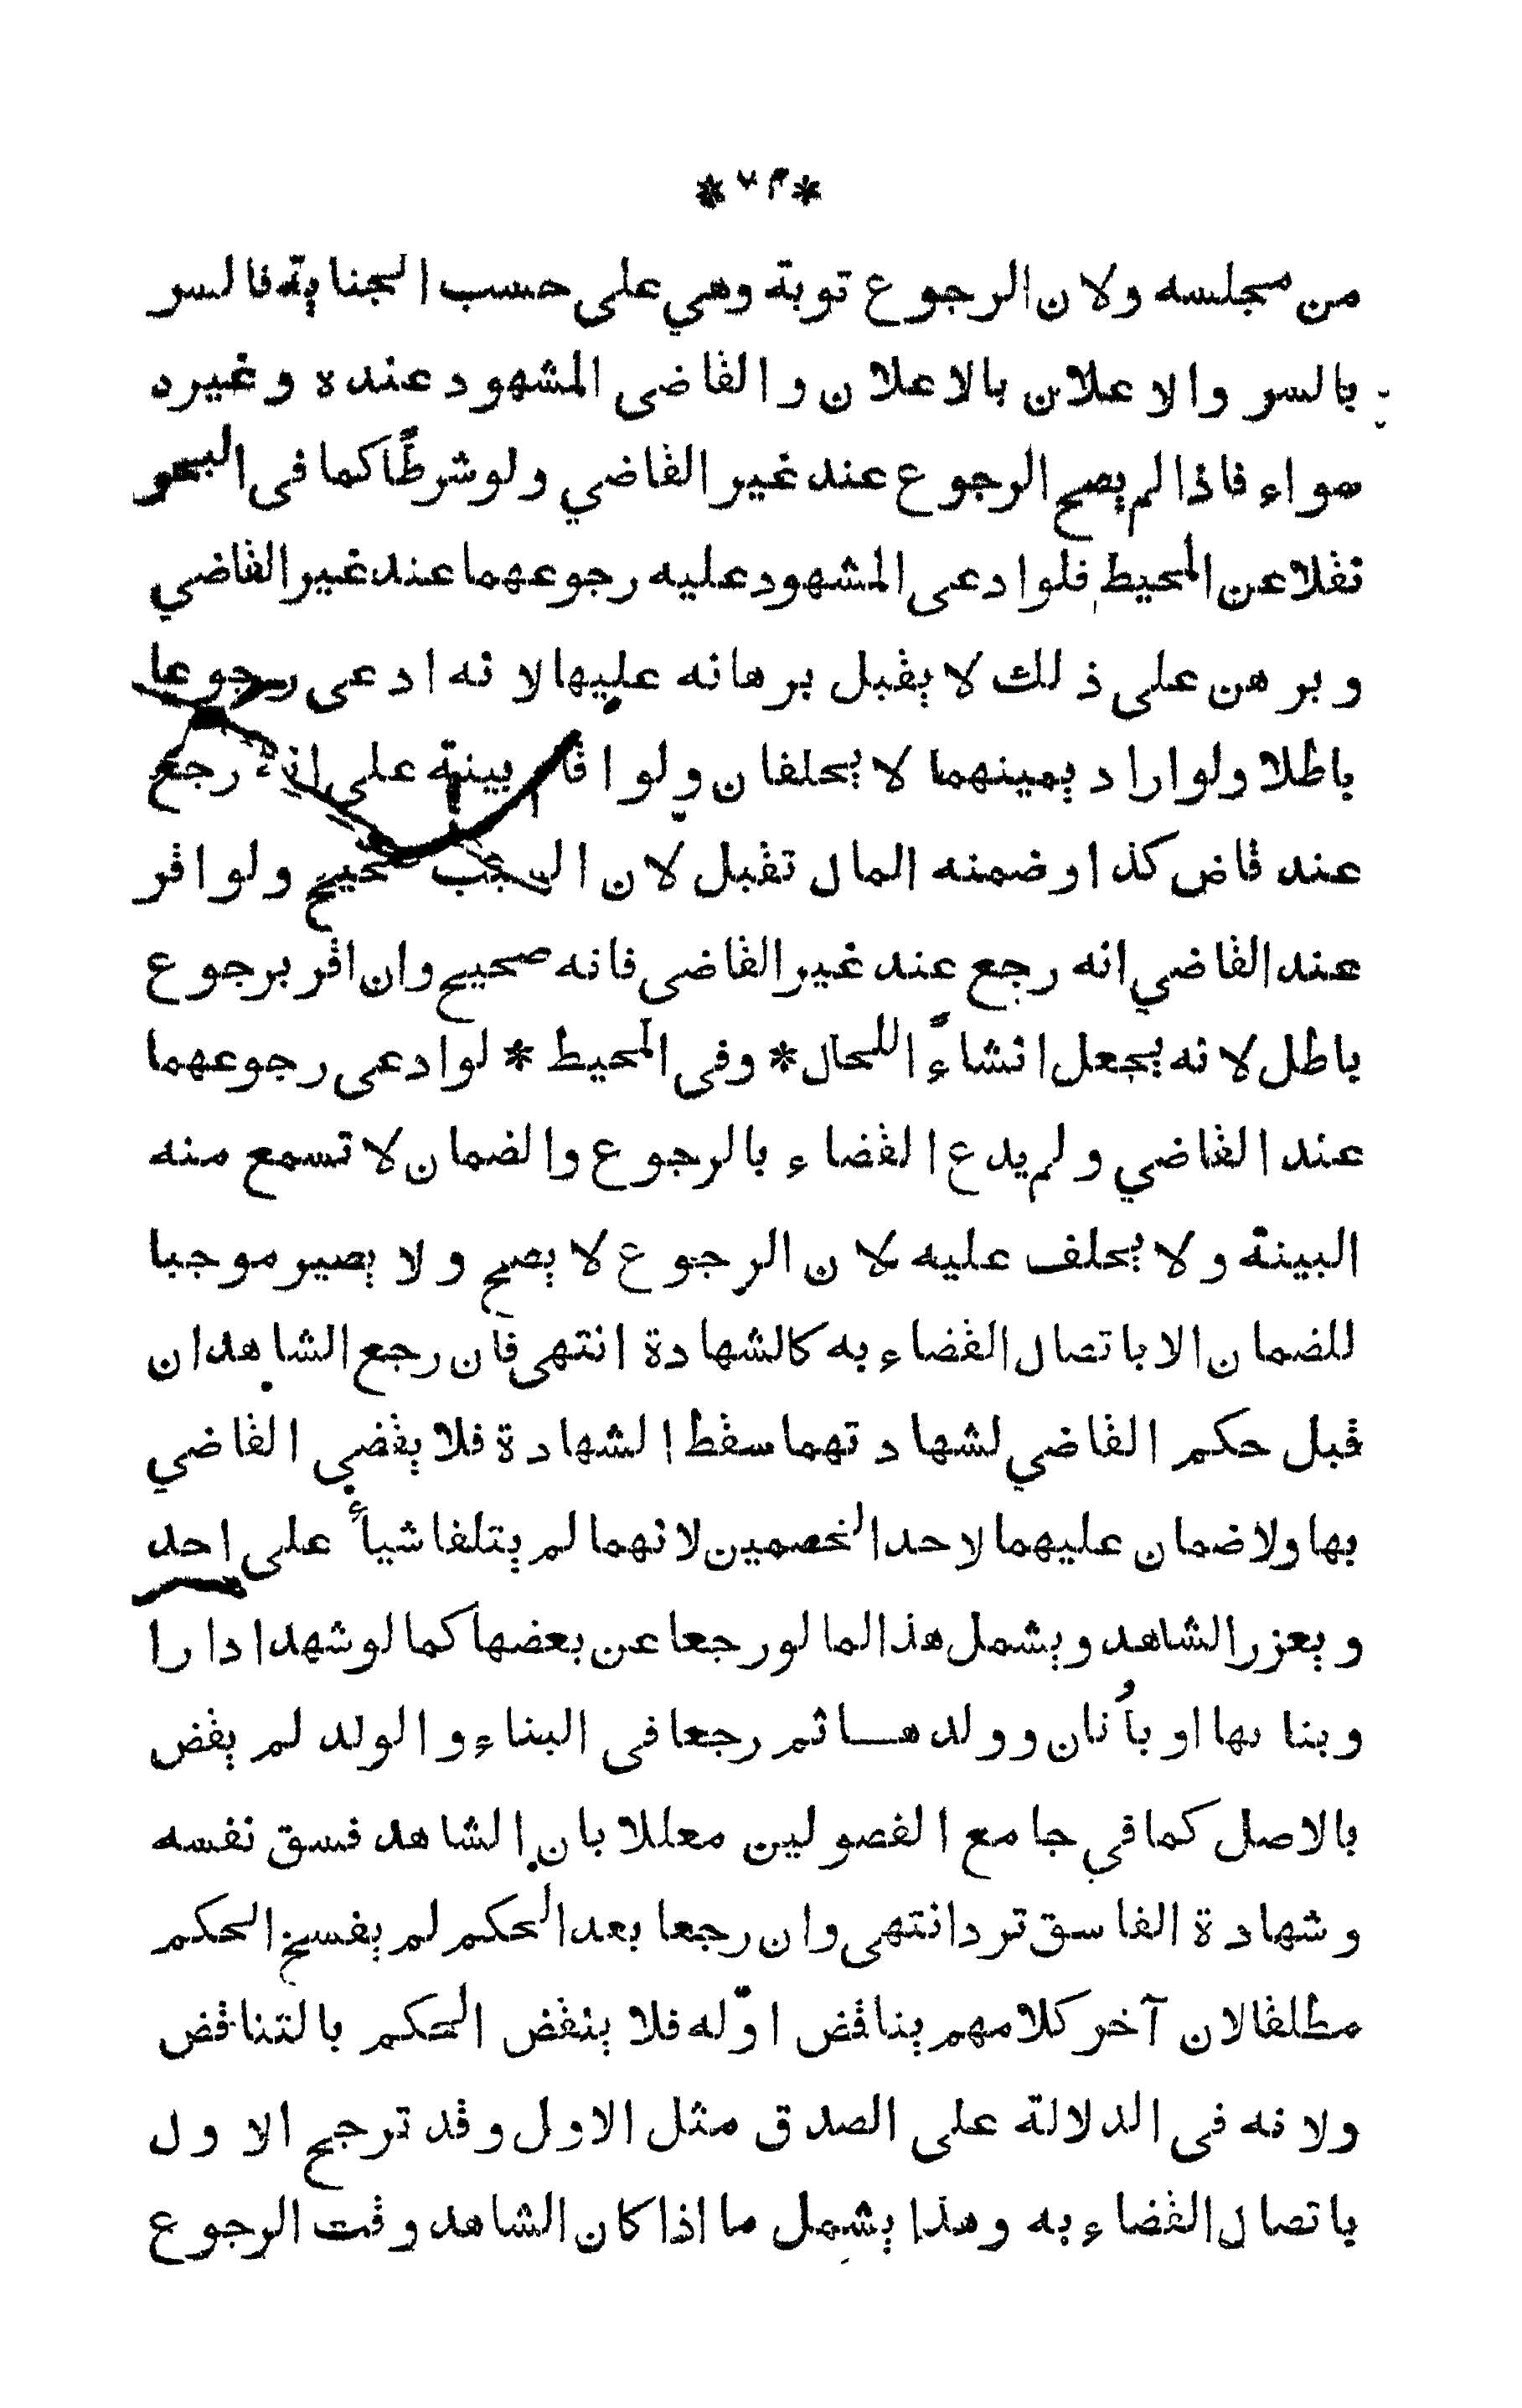 من مجلسه ولان الرجوع توبة وهي على حسب الجناية فالسر
بالسر والاعلان بالاعلان والقاضى المشهود عنده وغيره
سواء فاذا لم يصح الرجوع عند غير القاضي ولو شرطيًا كما فى البحر
نقلا عن المحيط فلو ادعى المشهود عليه رجوعهما عند غير القاضي
وبرهن على ذلك لا يقبل برهانه عليها لانه ادعى رجوعا
باطلا ولو اراد يمينهما لا يحلفان ولو اقام بينة على انه رجع
عند قاض كذا وضمنه المال تقبل لان السبب صحيح ولو اقر
عند القاضي انه رجع عند غير القاضى فانه صحيح وان اقر برجوع
باطل لانه يجعل انشاءً اللحال * وفى المحيط * لو ادعى رجوعهما
عند القاضي ولم يدع القضاء بالرجوع والضمان لا تسمع منه
البينة ولا يحلف عليه لان الرجوع لا يصح ولا يصير موجبا
للضمان الا باتصال القضاء به كالشهادة انتهى فان رجع الشاهدان
قبل حكم القاضي لشهادتهما سقط الشهادة فلا يقضي القاضي
بها ولا ضمان عليهما لاحد الخصمين لانهما لم يتلفا شيأً على احد
ويعزر الشاهد ويشمل هذا لما لو رجعا عن بعضها كما لو شهدا دارا
وبنا بها او بأُنان وولدهــا ثم رجعا فى البناء والولد لم يقض
بالاصل كما في جامع الفصولين معللا بان الشاهد فسق نفسه
وشهادة الفاسق ترد انتهى وان رجعا بعد الحكم لم يفسخ الحكم
مطلقا لان آخر كلامهم يناقض اوّله فلا ينقض الحكم بالتناقض
ولانه فى الدلالة على الصدق مثل الاول وقد ترجح الاول
باتصال القضاء به وهذا يشمل ما اذا كان الشاهد وقت الرجوع